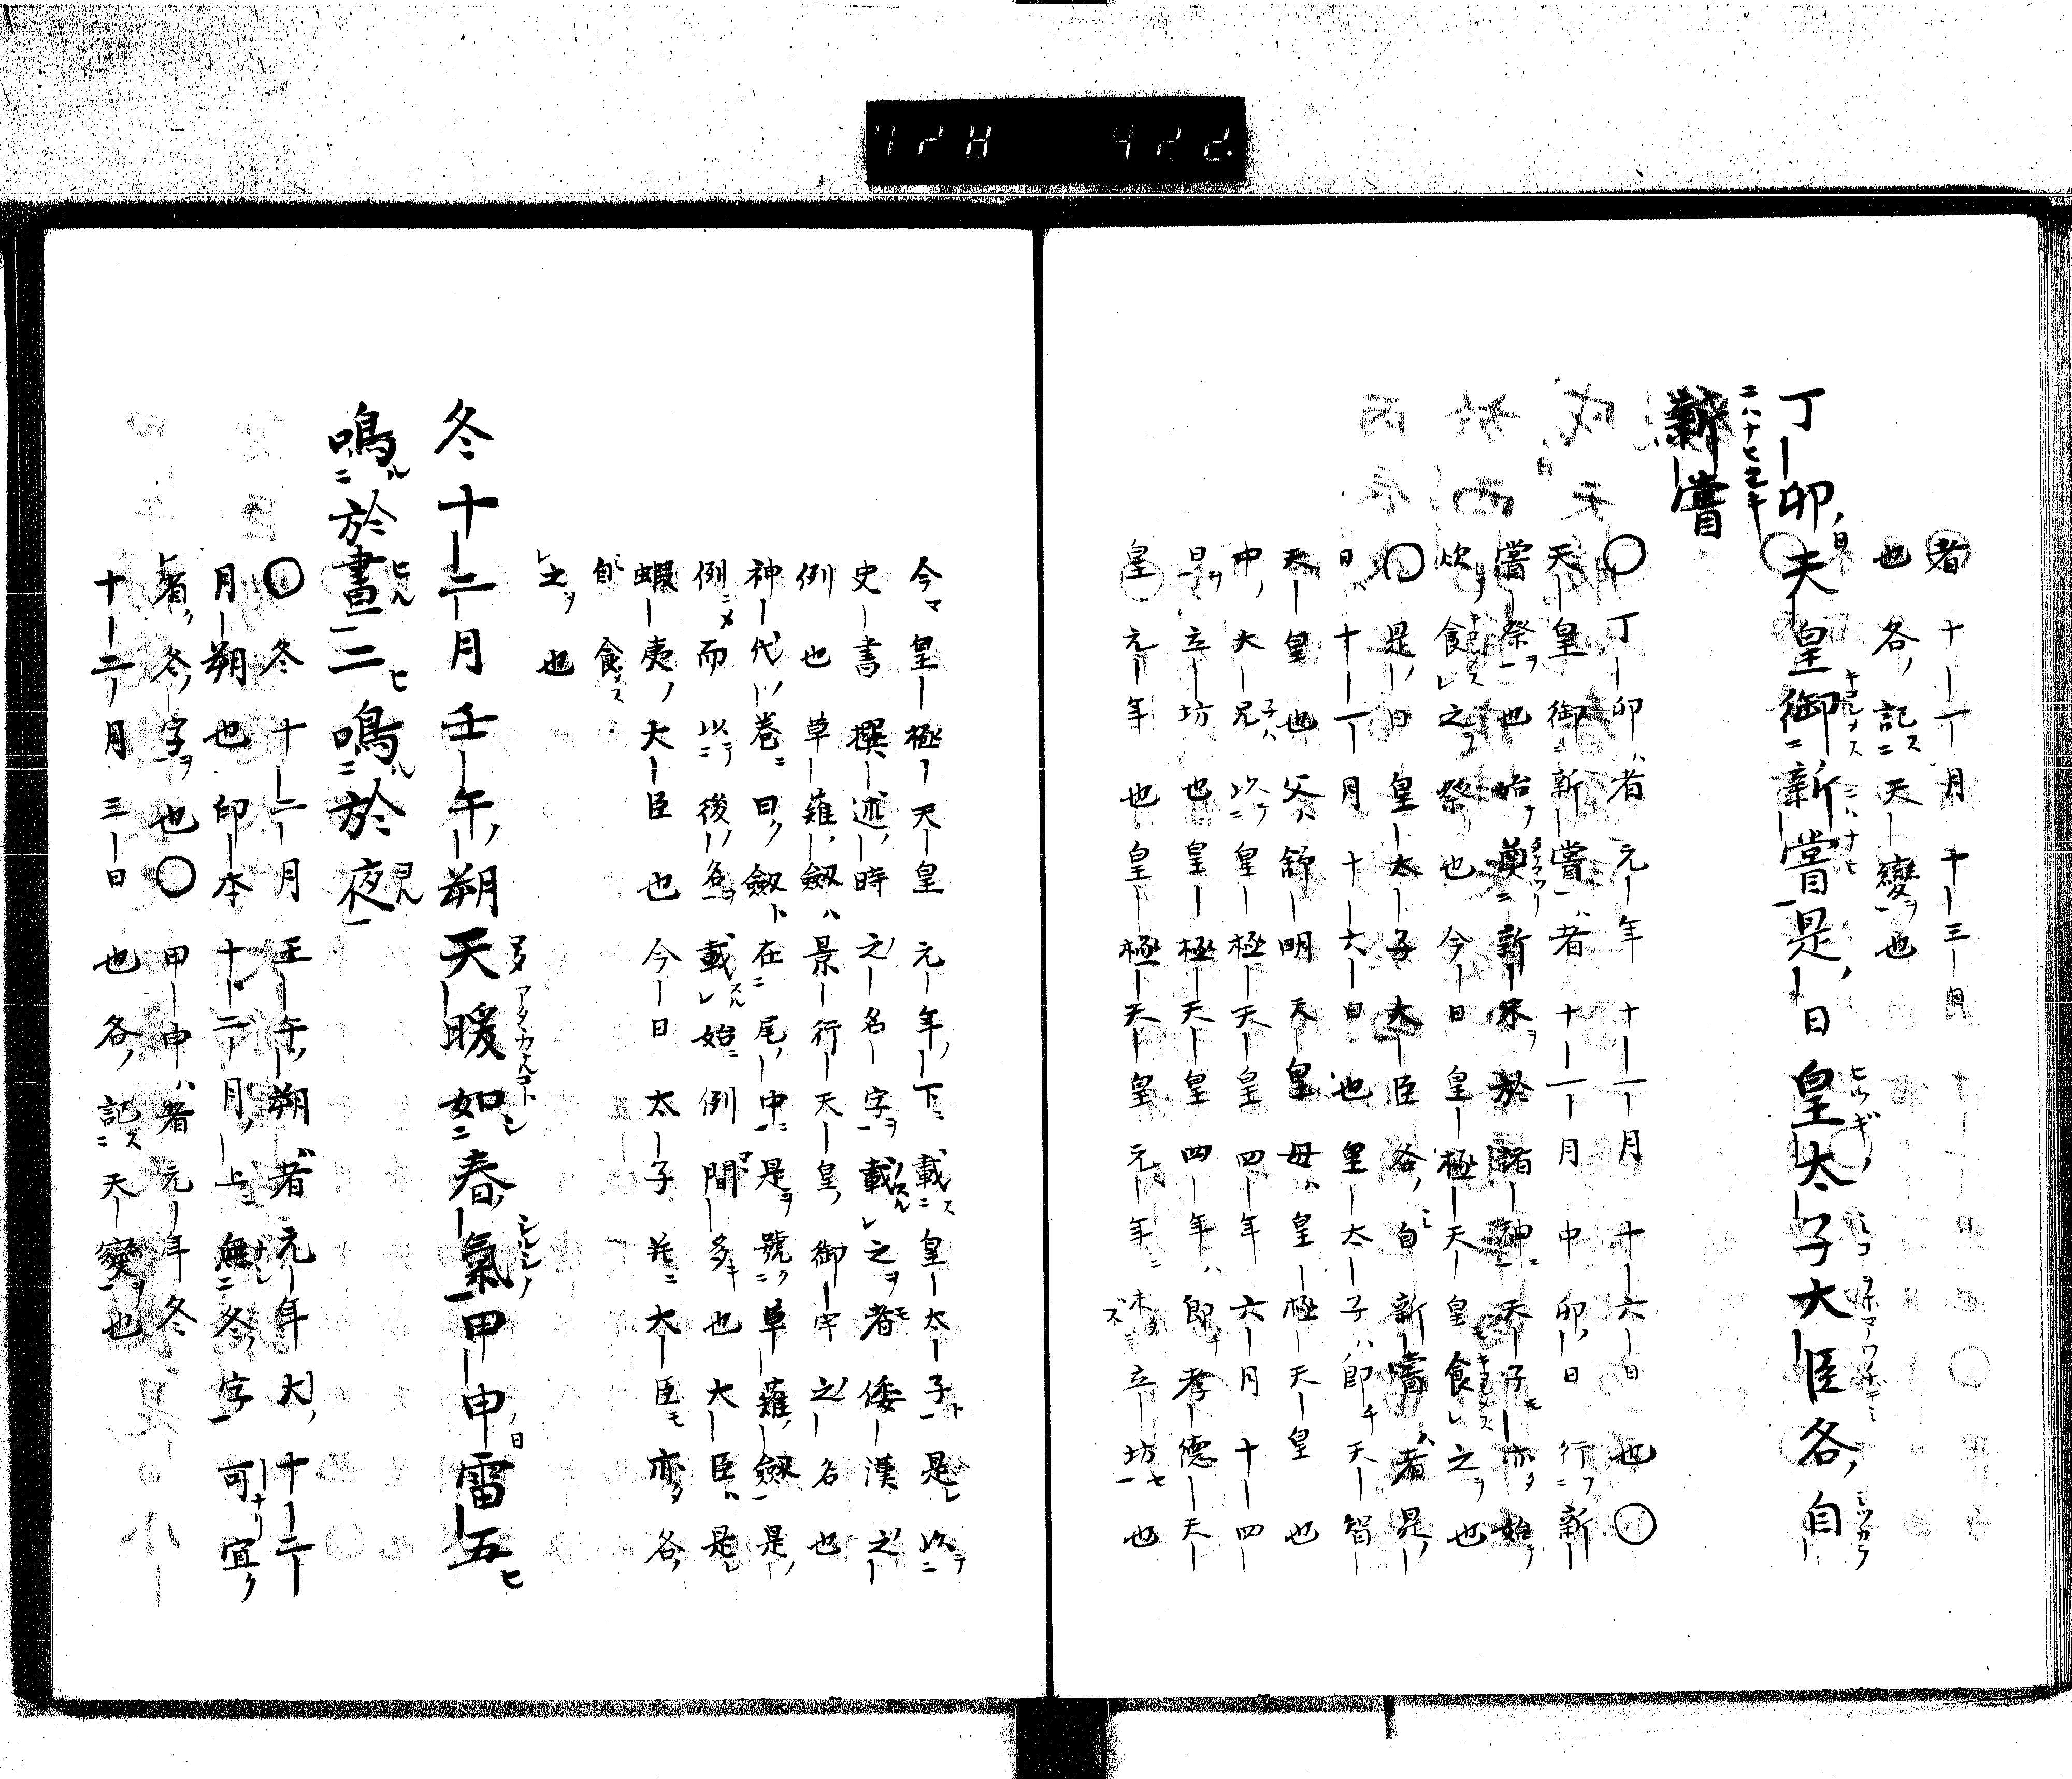 728 422
者十一月十三日
也各記天變也
丁卯天皇御新嘗是日皇太子大臣各自
新嘗
○丁卯者元年十一月十六日也○
天皇御新嘗者十一月中卯日行新
嘗祭也始奠新米於諸神天子亦始
炊食之祭也今日皇極天皇食之也
○是日皇太子大臣各自新嘗者是
日十一月十六日也皇太子即天智
天皇也父舒明天皇母皇極天皇也
中大兄以皇極天皇四年六月十四
日立坊也皇極天皇四年即孝德天
皇元年也皇極天皇元年未立坊也
今皇極天皇元年下載皇太子是以
史書撰述時之名字載之者倭漢之
例也草薙劔景行天皇御宇之名也
神代卷曰劔在尾中是號草薙劔是
例而以後名載始例間多也大臣是
蝦夷大臣也今日太子并大臣亦各
自食
之也
冬十二月壬午朔天暖如春氣甲申雷五
鳴於晝二鳴於夜
○冬十二月壬午朔者元年大十二
月朔也印本十二月上無冬字可宜
省冬字也○甲申者元年冬
十二月三日也各記天變也